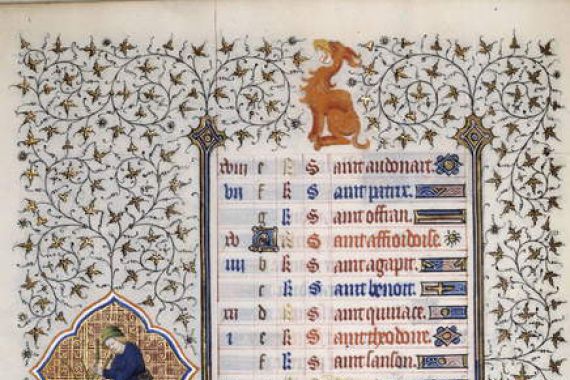 xviii e k Saint audouart.
vii f k Saint patrix.
g k Saint offran.
xv A k Saint affrodoise.
iiii b k Saint agapit.
c k Saint benoit.
xii d k Saint quiriace.
i e k Saint theodoire.
f k Saint sanson.